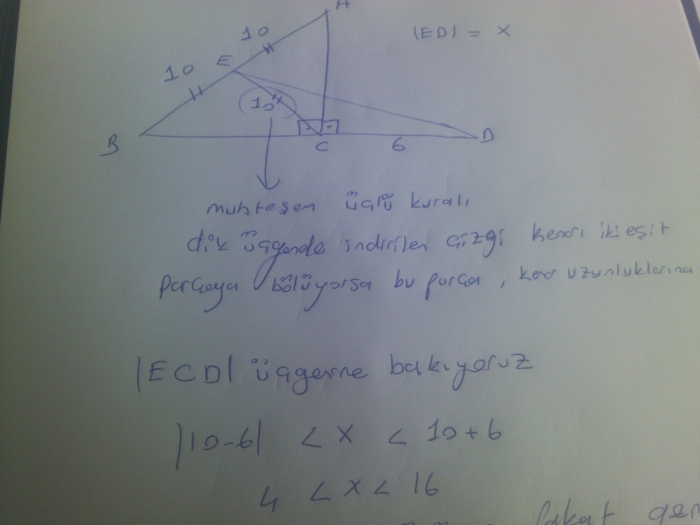 A
|ED| = x
10
10
E
10
B
C
6
D
muhteşem üçlü kuralı
dik üçgende indirilen çizgi kenarı iki eşit
parçaya bölüyorsa bu parça, kenar uzunluklarına
|ECD| üçgenine bakıyoruz
|10-6| < x < 10+6
4 < x < 16
fakat